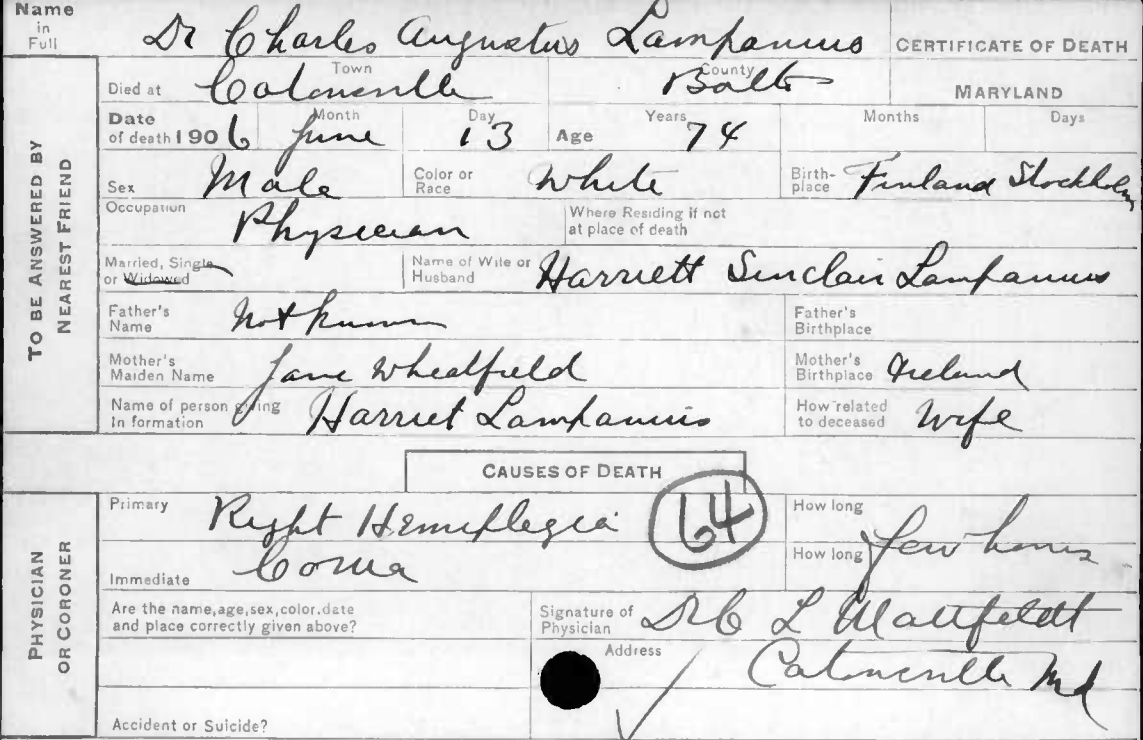 Name in Full Dr Charles Augustus Lampanius CERTIFICATE OF DEATH
Died at Town Catonsville County Balto MARYLAND
Date of death 1906 Month June Day 13 Age Years 74 Months Days
Sex Male Color or Race White Birth-place Finland Stockholm
Occupation Physician Where Residing if not at place of death
Married, Single or Widowed Name of Wife or Husband Harriett Sinclair Lampanius
Father's Name Not known Father's Birthplace
Mother's Maiden Name Jane Wheatfield Mother's Birthplace Ireland
Name of person giving In formation Harriet Lampanius How related to deceased Wife
TO BE ANSWERED BY NEAREST FRIEND
CAUSES OF DEATH
Primary Right Hemiplegia 64 How long
Immediate Coma How long few hours
Are the name,age,sex,color.date and place correctly given above? Signature of Physician Dr C L Mattfeldt
Address Catonsville Md
Accident or Suicide?
PHYSICIAN OR CORONER